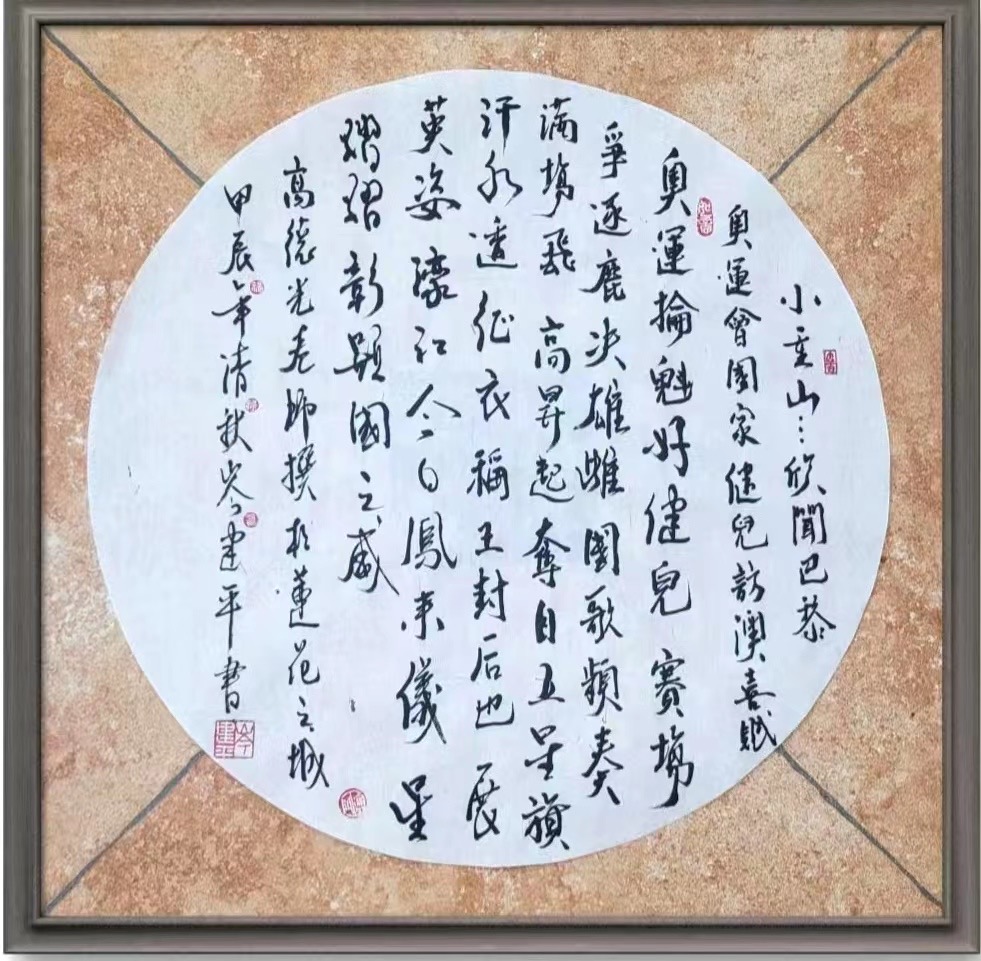 小重山…欣聞巴黎
奧運會國家健兒訪澳喜賦
奧運掄魁好健兒 賽場
爭逐鹿決雄雌國歌頻奏
滿場飛 高昇起奪目五星旗
汗水透征衣稱王封后也展
英姿濠江今日鳳來儀 星
熠熠彰顯國之威
高德光老師撰於蓮花之城
甲辰年清秋岑建平書